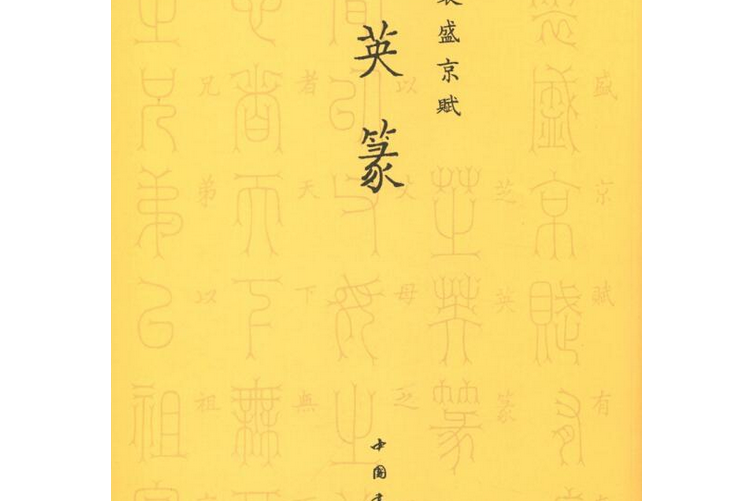 盛京賦
英篆
中国
盛京賦有
芝英篆
以父母之
者天下無
兄弟以祖